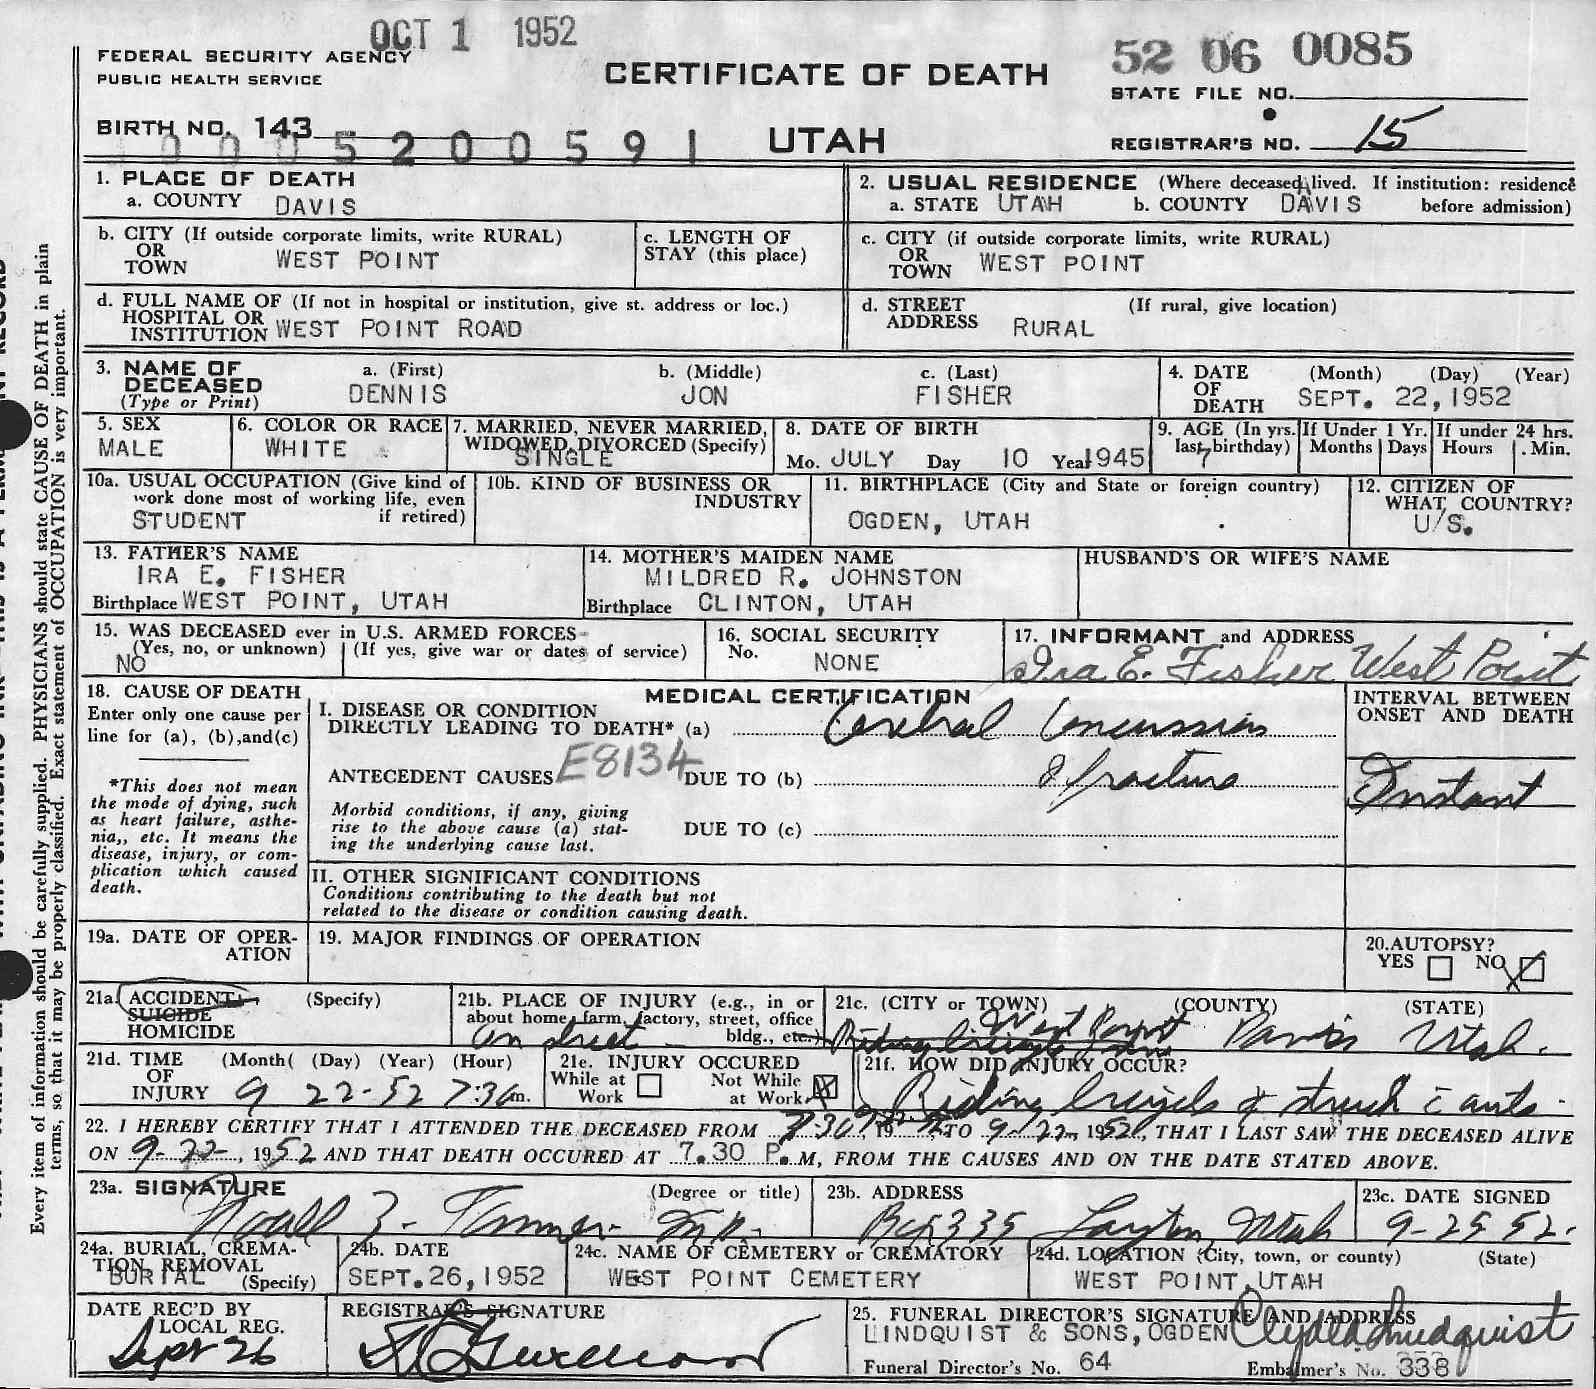 OCT 1 1952
FEDERAL SECURITY AGENCY
PUBLIC HEALTH SERVICE
CERTIFICATE OF DEATH
52 06 0085
STATE FILE NO.
BIRTH NO. 143
0 0 0 5 2 0 0 5 9 1
UTAH
REGISTRAR'S NO. 15
1. PLACE OF DEATH
a. COUNTY DAVIS
2. USUAL RESIDENCE (Where deceased lived. If institution: residence before admission)
a. STATE UTAH b. COUNTY DAVIS
b. CITY (If outside corporate limits, write RURAL)
OR
TOWN WEST POINT
c. LENGTH OF
STAY (this place)
c. CITY (if outside corporate limits, write RURAL)
OR
TOWN WEST POINT
d. FULL NAME OF (If not in hospital or institution, give st. address or loc.)
HOSPITAL OR
INSTITUTION WEST POINT ROAD
d. STREET (If rural, give location)
ADDRESS RURAL
3. NAME OF
DECEASED
(Type or Print)
a. (First) b. (Middle) c. (Last)
DENNIS JON FISHER
4. DATE (Month) (Day) (Year)
OF
DEATH SEPT. 22, 1952
5. SEX
MALE
6. COLOR OR RACE
WHITE
7. MARRIED, NEVER MARRIED,
WIDOWED, DIVORCED (Specify)
SINGLE
8. DATE OF BIRTH
Mo. JULY Day 10 Year 1945
9. AGE (In yrs. last birthday)
7
If Under 1 Yr.
Months Days
If under 24 hrs.
Hours Min.
10a. USUAL OCCUPATION (Give kind of
work done most of working life, even
if retired)
STUDENT
10b. KIND OF BUSINESS OR
INDUSTRY
11. BIRTHPLACE (City and State or foreign country)
OGDEN, UTAH
12. CITIZEN OF
WHAT COUNTRY?
U/S.
13. FATHER'S NAME
IRA E. FISHER
Birthplace WEST POINT, UTAH
14. MOTHER'S MAIDEN NAME
MILDRED R. JOHNSTON
Birthplace CLINTON, UTAH
HUSBAND'S OR WIFE'S NAME
15. WAS DECEASED ever in U.S. ARMED FORCES
(Yes, no, or unknown) (If yes, give war or dates of service)
NO
16. SOCIAL SECURITY
No. NONE
17. INFORMANT and ADDRESS
Ira E. Fisher West Point
18. CAUSE OF DEATH
Enter only one cause per
line for (a), (b),and(c)
*This does not mean
the mode of dying, such
as heart failure, asthe-
nia,, etc. It means the
disease, injury, or com-
plication which caused
death.
MEDICAL CERTIFICATION
I. DISEASE OR CONDITION
DIRECTLY LEADING TO DEATH* (a) Cerebral Concussion
ANTECEDENT CAUSES E8134 DUE TO (b) & fracture
Morbid conditions, if any, giving
rise to the above cause (a) stat-
ing the underlying cause last.
DUE TO (c)
INTERVAL BETWEEN
ONSET AND DEATH
Instant
II. OTHER SIGNIFICANT CONDITIONS
Conditions contributing to the death but not
related to the disease or condition causing death.
19a. DATE OF OPER-
ATION
19. MAJOR FINDINGS OF OPERATION
20.AUTOPSY?
YES NO X
21a. ACCIDENT (Specify)
SUICIDE
HOMICIDE
21b. PLACE OF INJURY (e.g., in or
about home, farm, factory, street, office
bldg., etc.)
on street
21c. (CITY or TOWN) (COUNTY) (STATE)
West Point Davis Utah.
21d. TIME (Month( (Day) (Year) (Hour)
OF
INJURY 9 22-52 7:30m.
21e. INJURY OCCURED
While at Work Not While at Work X
21f. HOW DID INJURY OCCUR?
Riding bicycle & struck c auto.
22. I HEREBY CERTIFY THAT I ATTENDED THE DECEASED FROM 7:30 9-22, 19 52 TO 9-22-, 1952, THAT I LAST SAW THE DECEASED ALIVE
ON 9-22-, 1952 AND THAT DEATH OCCURED AT 7.30 P.M, FROM THE CAUSES AND ON THE DATE STATED ABOVE.
23a. SIGNATURE (Degree or title)
Noall Z. Tanner M.D.
23b. ADDRESS
Box 335 Layton, Utah
23c. DATE SIGNED
9-25 52.
24a. BURIAL, CREMA-
TION, REMOVAL
(Specify)
BURIAL
24b. DATE
SEPT.26,1952
24c. NAME OF CEMETERY or CREMATORY
WEST POINT CEMETERY
24d. LOCATION (City, town, or county) (State)
WEST POINT,UTAH
DATE REC'D BY
LOCAL REG.
Sept 26
REGISTRAR'S SIGNATURE
25. FUNERAL DIRECTOR'S SIGNATURE AND ADDRESS
LINDQUIST & SONS, OGDEN Clyde Lindquist
Funeral Director's No. 64
Embalmer's No. 338
Every item of information should be carefully supplied. PHYSICIANS should state CAUSE OF DEATH in plain
terms, so that it may be properly classified. Exact statement of OCCUPATION is very important.